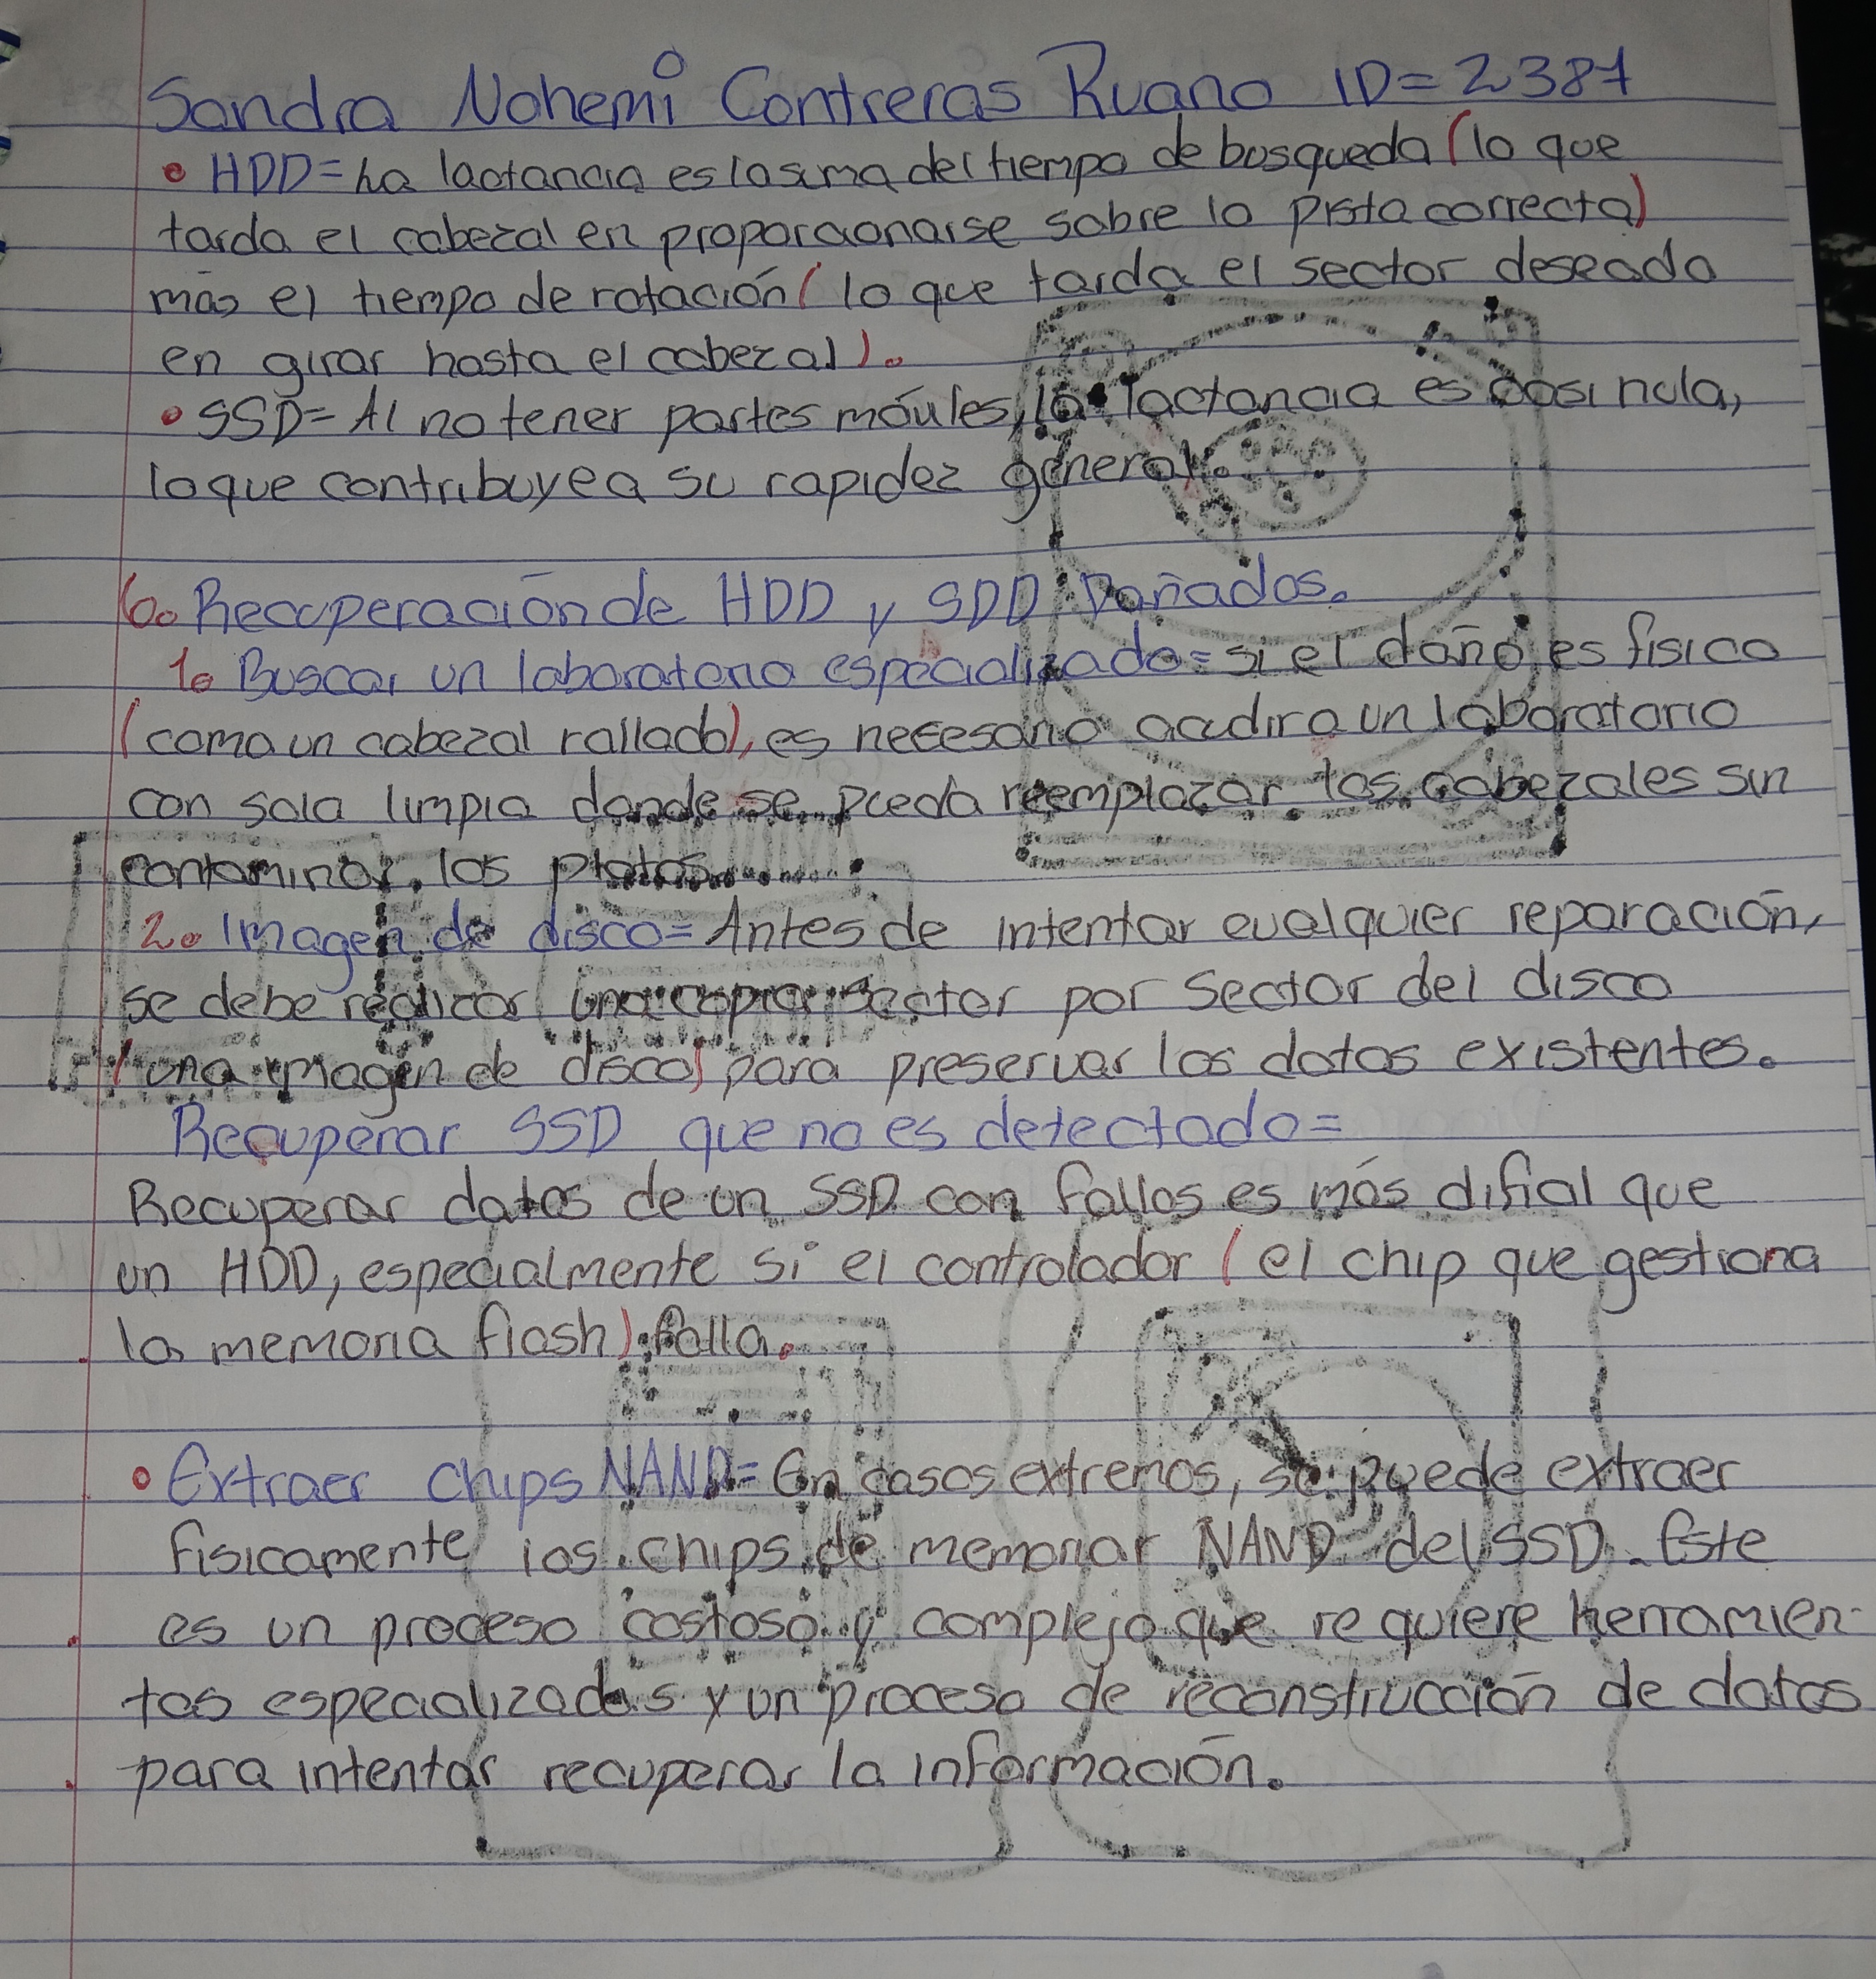 Sandra Nohemi Contreras Ruano ID=2387
• HDD=La lactancia es la suma del tiempo de busqueda (lo que
tarda el cabezal en proporcionarse sobre la pista correcta)
más el tiempo de rotación (lo que tarda el sector deseado
en girar hasta el cabezal).
• SSD=Al no tener partes móviles, la lactancia es casi nula,
lo que contribuye a su rapidez general.
6. Recuperación de HDD y SDD Dañados.
1. Buscar un laboratorio especializado=si el daño es fisico
(como un cabezal rallado), es necesario acudir a un laboratorio
con sala limpia donde se pueda reemplazar los cabezales sin
contaminar los platos.
2. Imagen de disco=Antes de intentar cualquier reparación,
se debe realizar una copia sector por sector del disco
(una imagen de disco) para preservar los datos existentes.
Recuperar SSD que no es detectado=
Recuperar datos de un SSD con fallos es más dificil que
un HDD, especialmente si el controlador (el chip que gestiona
la memoria flash) falla.
• Extraer chips NAND=En casos extremos, se puede extraer
fisicamente los chips de memoriar NAND del SSD. Este
es un proceso costoso y complejo que requiere herramien-
tas especializadas y un proceso de reconstrucción de datos
para intentar recuperar la información.